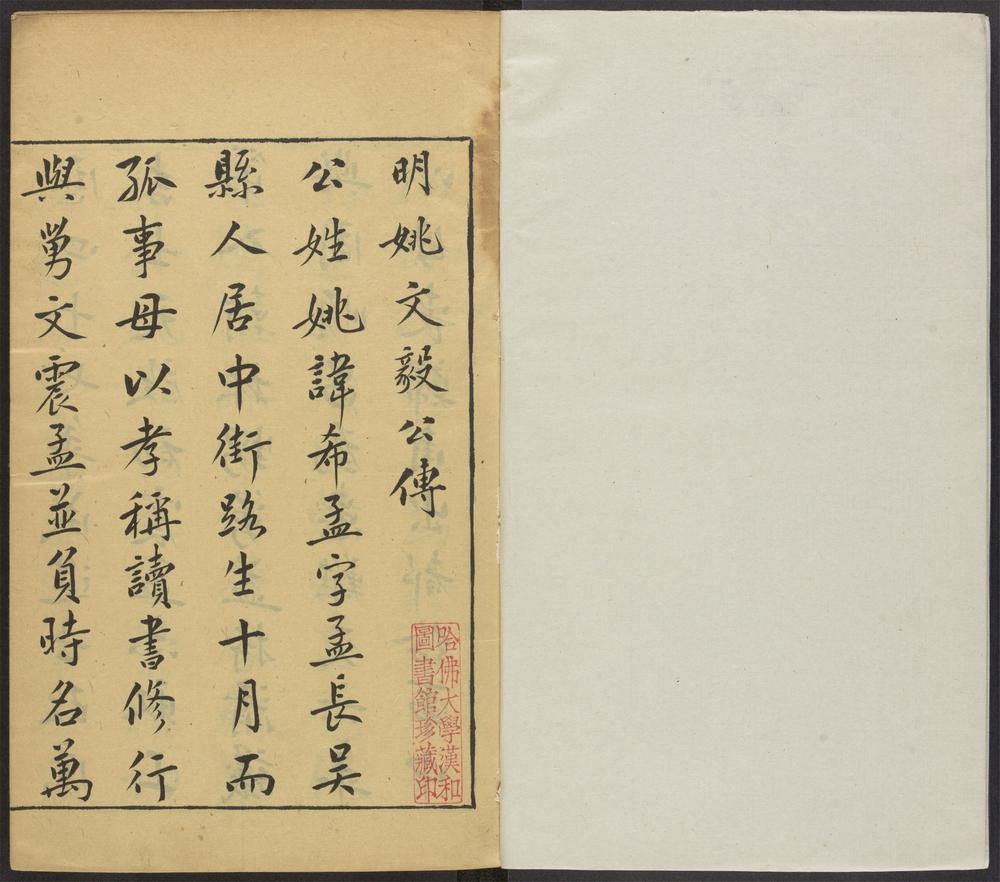 明姚文毅公傳
公姓姚諱希孟字孟長吴
縣人居中街路生十月而
孤事母以孝稱讀書修行
與舅文震孟並負時名萬
哈佛大學漢和
圖書館珍藏印